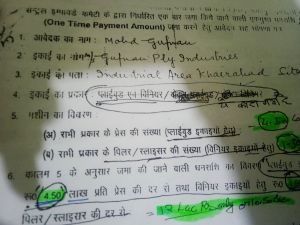 सेन्ट्रल इम्पावर्ड कमेटी के द्वारा निर्धारित एक बार जमा किये जाने वाली
(One Time Payment Amount) जमा करने हेतु आवेदन
1. आवेदक का नाम : Mohd Gufran
2. इकाई का नाम :- Gufran Ply Industries
3. इकाई का पता : Industrial Area Khairabad
4. इकाई का प्रकार : प्लाईवुड एवं विनियर /
5. मशीन का विवरण :
(अ) सभी प्रकार के प्रेस की संख्या (प्लाईवुड इकाइयों हेतु)
(ब) सभी प्रकार के पिलर/स्लाइसर की संख्या (विनियर इकाइयों हेतु)
6. कालम 5 के अनुसार जमा की जाने वाली धनराशि का विवरण
रू0 4.50 लाख प्रति प्रेस की दर से तथा विनियर इकाइयों हेतु रू0
पिलर/स्लाइसर की दर से